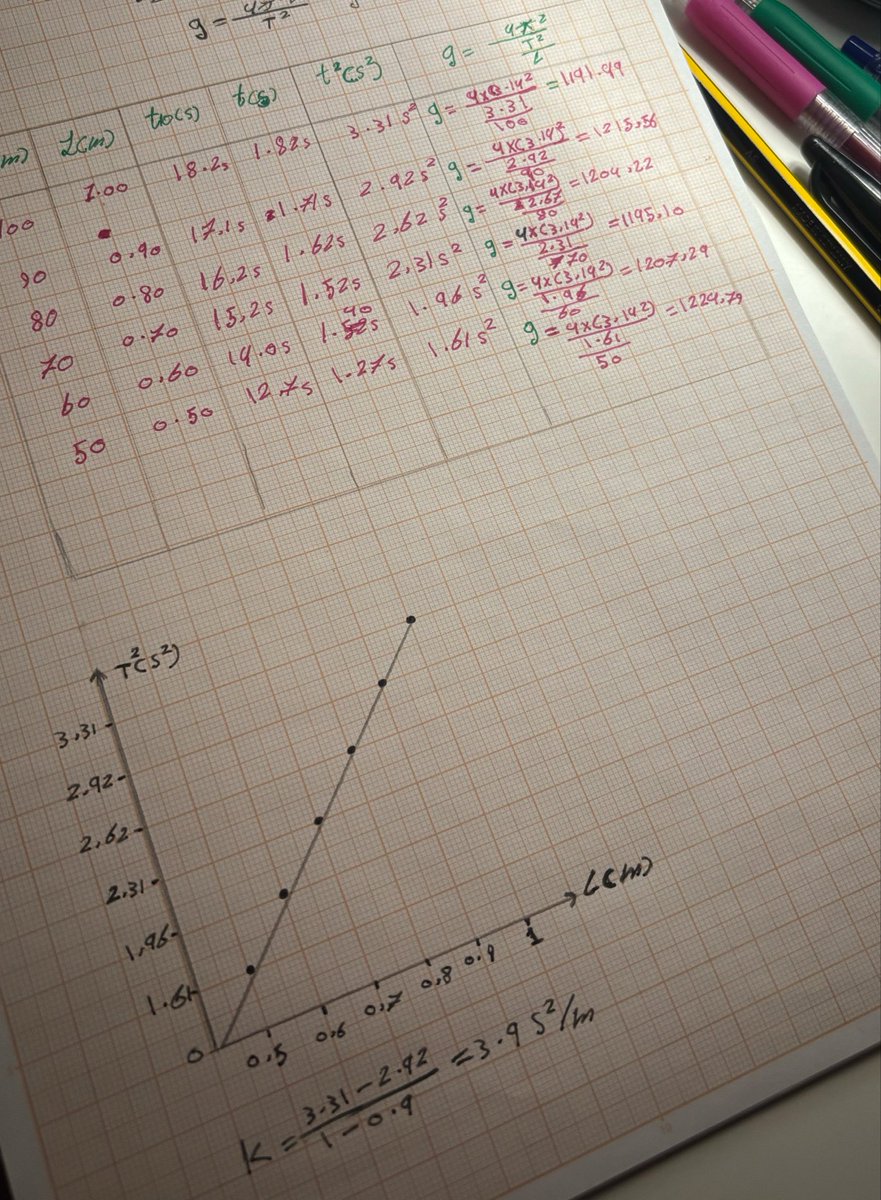 g = 4π² / T²
g = 4π² / T² / L
m) L(m) t10(s) t(s) t²(s²)
100 1.00 18.2s 1.82s 3.31s² g = 4×(3.14² / 3.31 / 100 = 1191.49
90 0.90 17.1s 1.71s 2.92s² g = 4×(3.14² / 2.92 / 90 = 1215,56
80 0.80 16,2s 1.62s 2,62s² g = 4×(3,14²) / 2,67 / 80 = 1204,22
70 0.70 15,2s 1.52s 2,31s² g = 4×(3,14²) / 2.31 / 70 = 1195,10
60 0.60 14.0s 1.40s 1.96s² g = 4×(3,14²) / 1.96 / 60 = 1207,29
50 0.50 12.7s 1.27s 1.61s² g = 4×(3,14²) / 1.61 / 50 = 1224,79
T²(s²)
3,31
2,92
2,62
2,31
1,96
1.61
0 0,5 0,6 0,7 0,8 0,9 1 L(m)
K = 3.31 - 2.92 / 1 - 0.9 = 3.9 s²/m